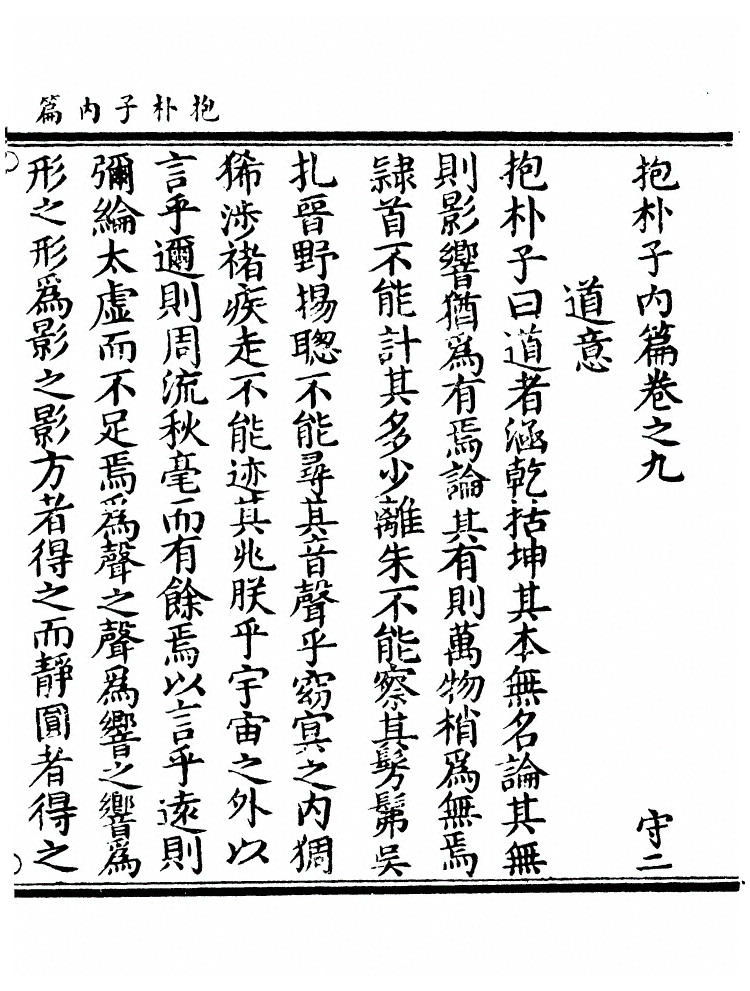 抱朴子内篇
抱朴子内篇卷之九
守二
道意
抱朴子曰道者涵乾括坤其本無名論其無
則影響猶爲有焉論其有則萬物梢爲無焉
隷首不能計其多少離朱不能察其髣髴吴
扎晉野揚聰不能尋其音聲乎窈冥之内猢
狶涉禇疾走不能迹其兆朕乎宇宙之外以
言乎邇則周流秋毫而有餘焉以言乎遠則
彌綸太虛而不足焉爲聲之聲爲響之響爲
形之形爲影之影方者得之而靜圓者得之